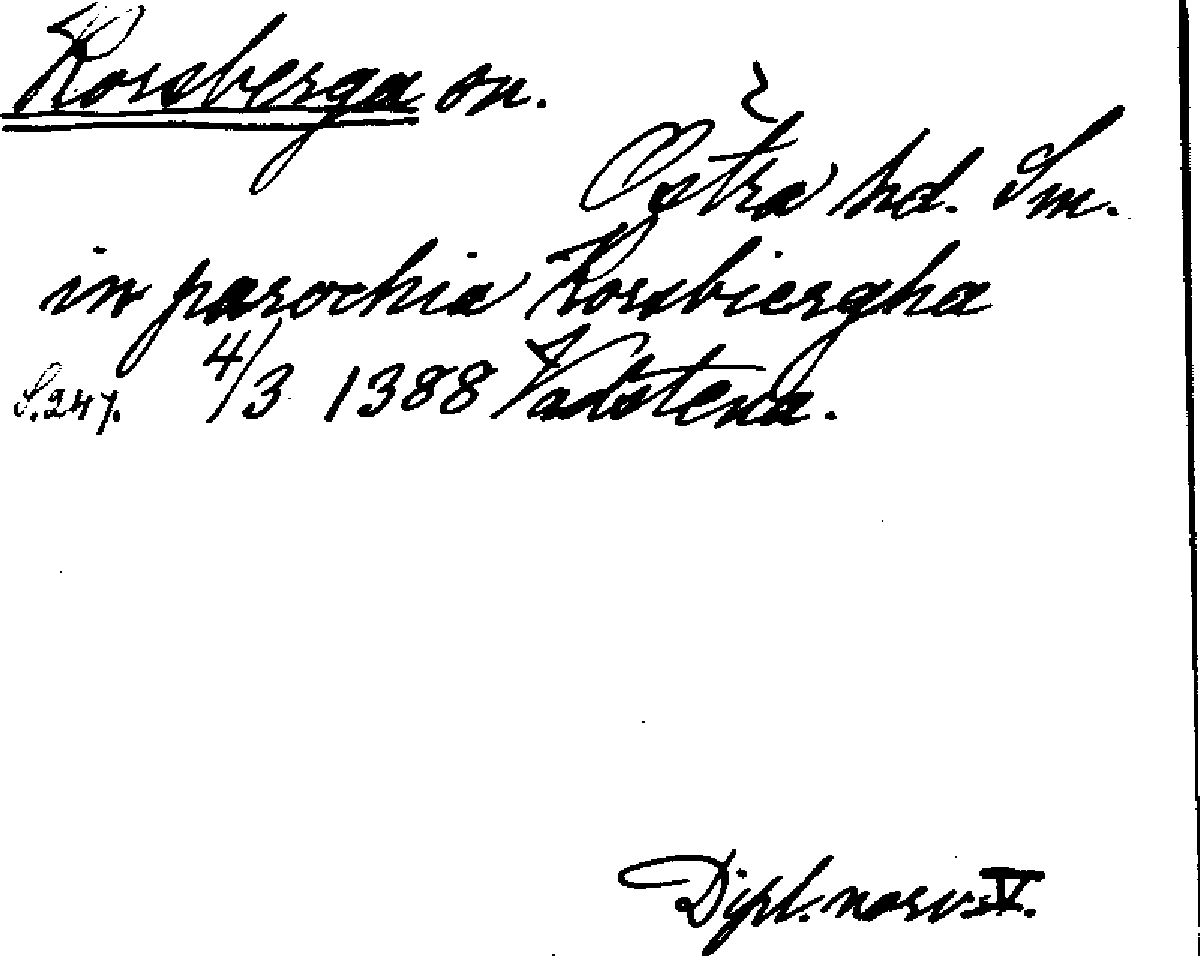 Korsberga sn.
Östra hd. Sm.
in parochia Korsbiergha
S. 247. 4/3 1388 Vadstena.
Dipl. norv. V.